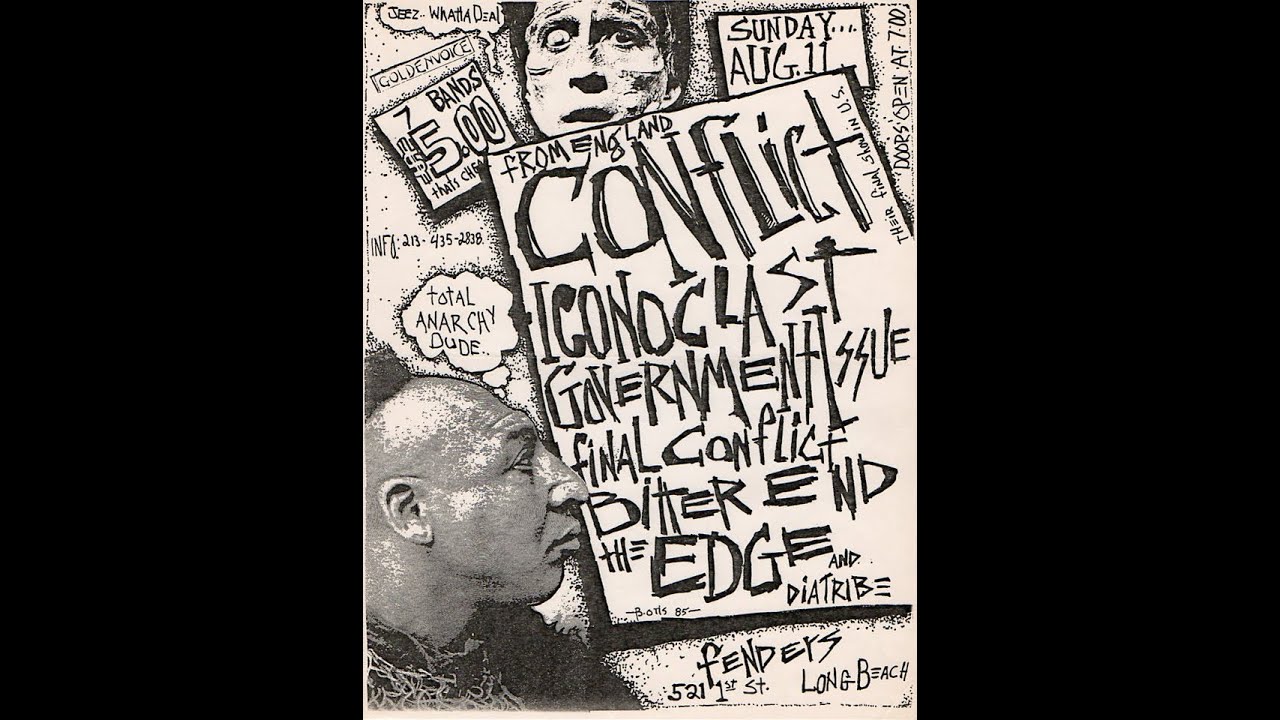 JEEZ. WHATTA DEAL
GOLDENVOICE
7 BANDS
5.00
that's CHE
INFO: 213-435-2838
SUNDAY....
AUG. 11
DOORS OPEN AT 7:00
FROM ENGLAND
CONFLICT
THEIR final SHOW IN U.S.
ICONOCLAST
GOVERNMENT ISSUE
fINAL CONflICT
BitteR END
the EDGE AND
DIATRIBE
total
ANARCHY
DUDE..
-B.OTIS 85-
fENDERS
521 1st St. LONG BEACH